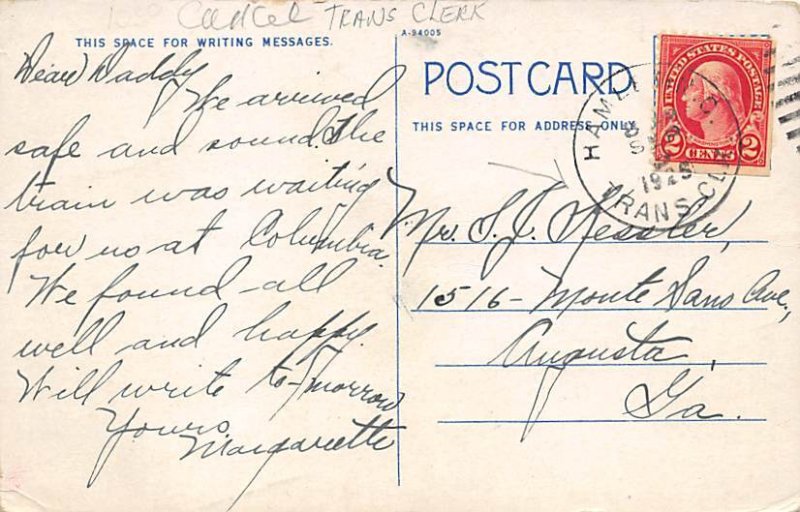 Cancel TRANS CLERK
THIS SPACE FOR WRITING MESSAGES.
Dear Daddy
We arrived
safe and sound. The
train was waiting
for us at Columbia.
We found all
well and happy.
Will write to-morrow
Yours,
Margarette
A-94005
POST CARD
THIS SPACE FOR ADDRESS ONLY.
UNITED STATES POSTAGE
2 CENTS 2
HAMLET
1925
TRANS. CLK
Mr. S. J. Kessler,
1516 - Monte Sano Ave.,
Augusta,
Ga.